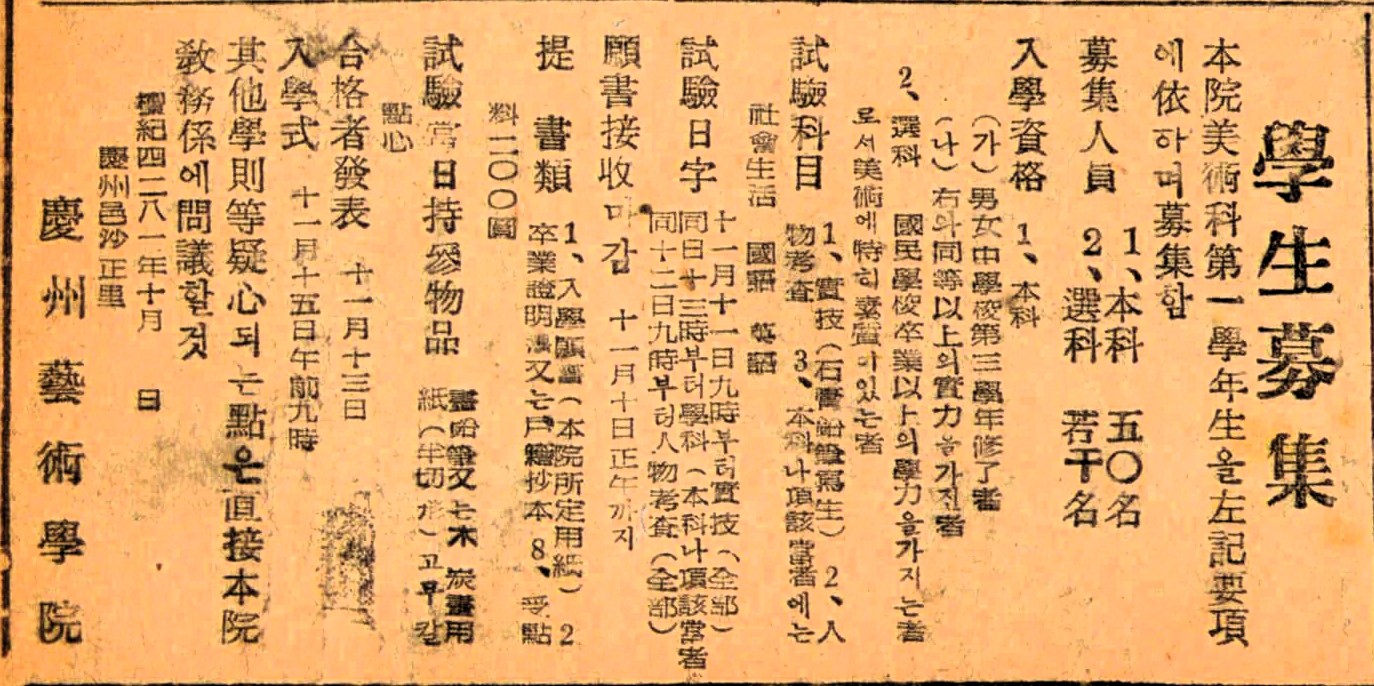 學生募集
本院美術科第一學年生을左記要項
에依하며募集함
募集人員
1、本科 五〇名
2、選科 若干名
入學資格 1、本科
(가)男女中學校第三學年修了者
(나)右와同等以上의實力을가진者
2、選科 國民學校卒業以上의學力을가지는者
로서美術에特히素質이있는者
試驗科目 1、實技(石膏鉛筆寫生) 2、人
物考査 3、本科나項該當者에는
社會生活 國語 英語
試驗日字 十一月十一日九時부터實技(全部)
同日十三時부터學科(本科나項該當者
同十二日九時부터人物考査(全部)
願書接收마감 十一月十日正午까지
提書類 1、入學願書(本院所定用紙) 2
卒業證明書又는戶籍抄本 8、受點
料二〇〇圓
試驗當日持參物品 畫鉛筆又는木炭畫用
紙(半切形)고무칼
點心
合格者發表 十一月十三日
入學式 十一月十五日午前九時
其他學則等疑心되는點은直接本院
敎務係에問議할것
檀紀四二八一年十月 日
慶州邑沙正里
慶州藝術學院